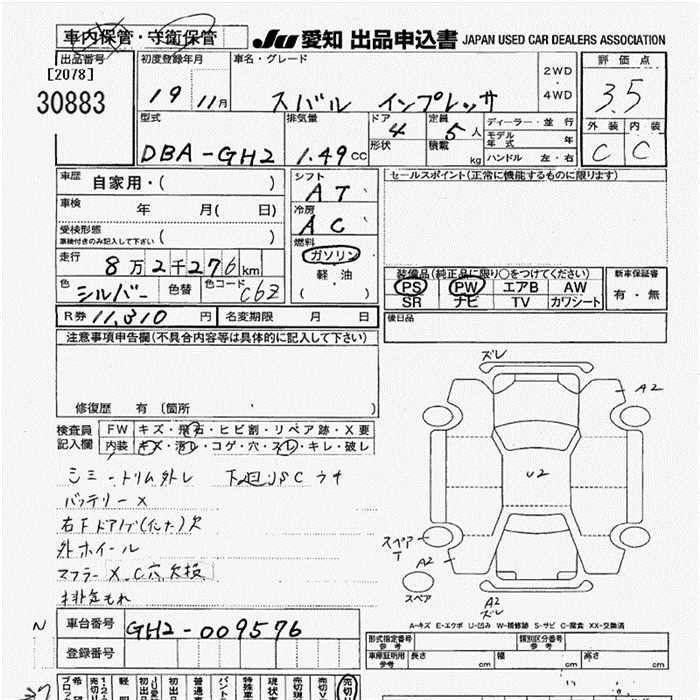 車内保管・守衛保管
JU 愛知 出品申込書 JAPAN USED CAR DEALERS ASSOCIATION
出品番号
[2078]
30883
初度登録年月
19 11月
車名・グレード
スバル インプレッサ
2WD
4WD
評価点
3.5
外装 内装
C C
型式
DBA-GH2
排気量
1.49 CC
ドア
4
形状
定員
5 人
積載
kg
ディーラー・並行
モデル年式 年
ハンドル 左・右
車歴 自家用・( )
車検 年 月( 日)
受検形態
車検付きのみ記入して下さい ( )
走行 8万2千276km
色 シルバー 色替 色コード C6Z
シフト
AT
冷房
AC
燃料
ガソリン
軽・油
( )
セールスポイント(正常に機能するものに限ります)
装備品(純正品に限り○をつけてください)
PS PW エアB AW
SR ナビ TV カワシート
新車保証書
有・無
後日品
R券 11,310 円 名変期限 月 日
注意事項申告欄(不具合内容等は具体的に記入して下さい)
修復歴 有 〔箇所 〕
検査員記入欄
FW キズ・飛石・ヒビ割・リペア跡・X要
内装 キズ・汚レ・コゲ・穴・スレ・キレ・破レ
シミ トリム外レ 下廻リSC
バッテリーX
外ホイール
マフラーX,C穴,欠損
排気もれ
ズレ
A2
U2
スペアT
A2
スペア
A2
ズレ
A-キズ E-エクボ U-凹み W-補修跡 S-サビ C-腐食 XX-交換済
N
車台番号 GH2-009576
登録番号
形式指定番号 参考
類別区分番号 参考
車庫証明用 参考
長さ cm 幅 cm 高さ cm